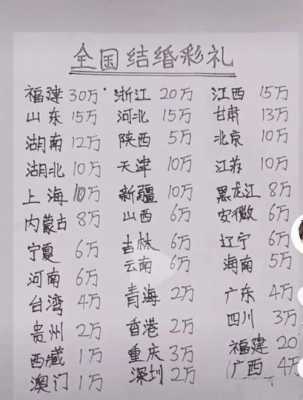 全国结婚彩礼
福建 30万 浙江 20万 江西 15万
山东 15万 河北 15万 甘肃 13万
湖南 12万 陕西 5万 北京 10万
湖北 10万 天津 10万 江苏 10万
上海 10万 新疆 10万 黑龙江 8万
内蒙古 8万 山西 6万 安徽 6万
宁夏 6万 吉林 6万 辽宁 6万
河南 6万 云南 6万 海南 5万
台湾 4万 青海 2万 广东 4万
贵州 2万 香港 2万 四川 3万
西藏 1万 重庆 3万 福建 20
澳门 1万 深圳 2万 广西 4万